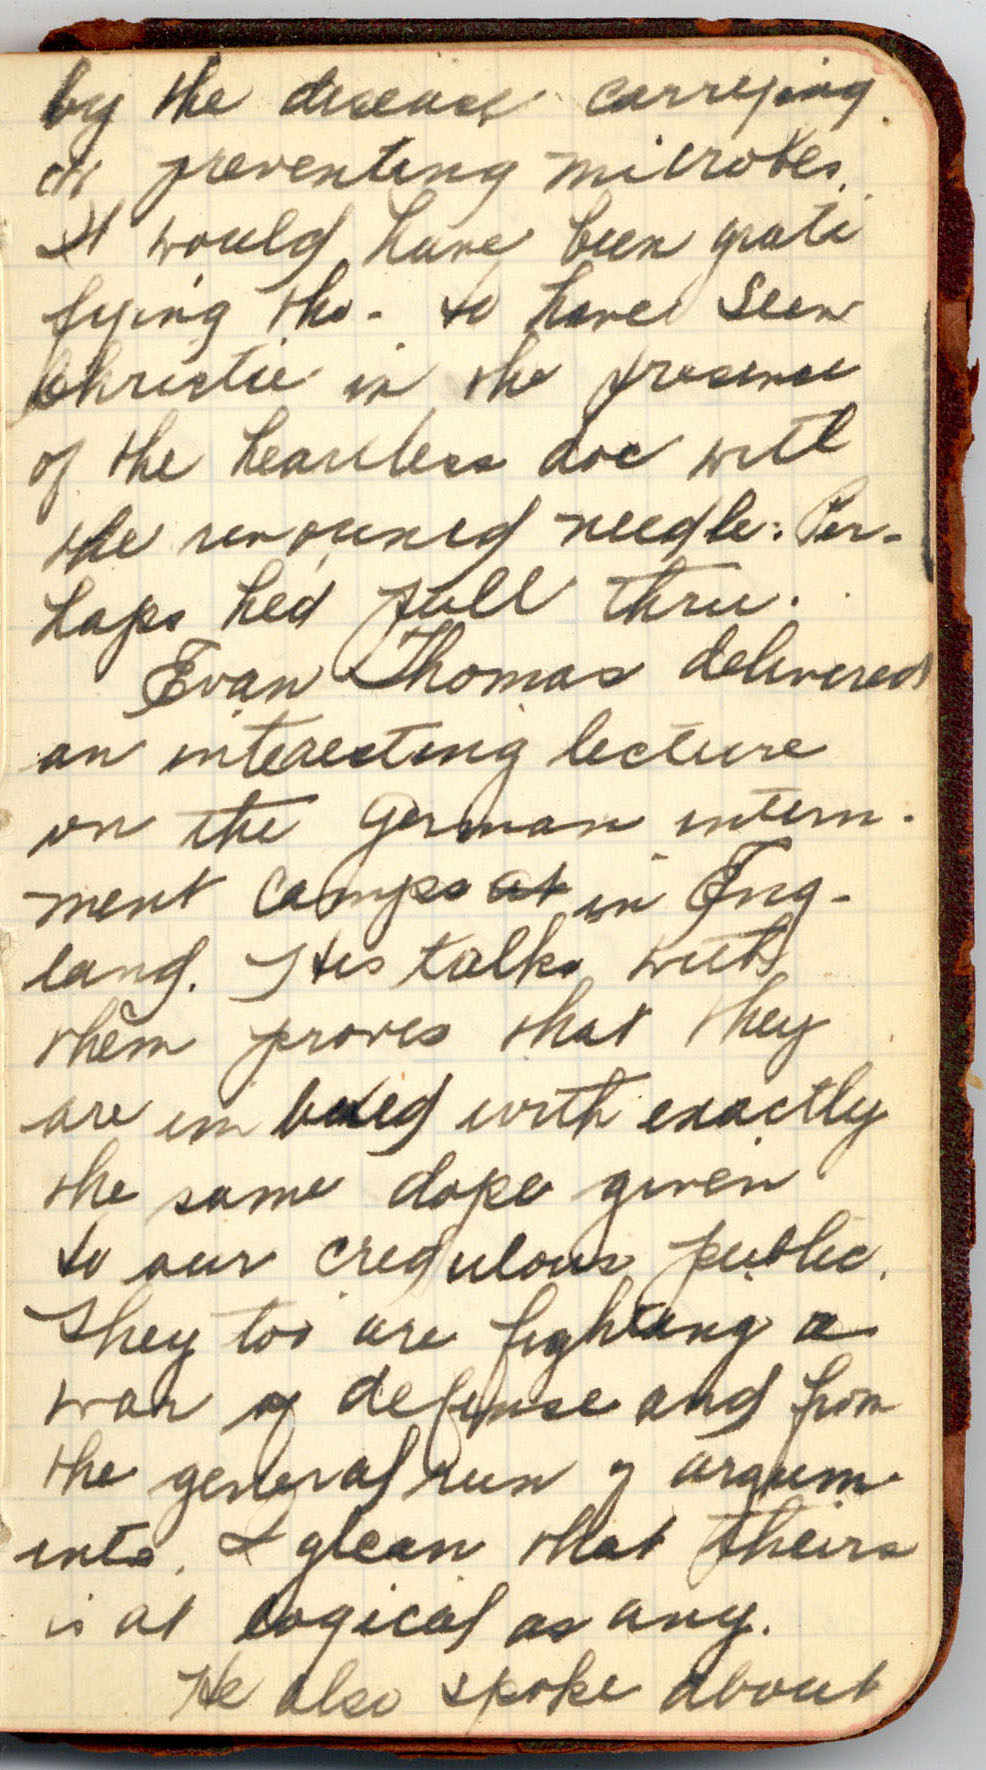 by the disease carrying
or preventing microbes.
It would have been grati
fying tho- to have seen
Christie in the presense
of the heartless doc with
the renouned needle. Per-
haps hed pull thru.
Evan Thomas delivered
an interesting lecture
on the German intern-
ment camps at in Eng-
land. His talks with
them proves that they
are im bued with exactly
the same dope given
to our credulous public.
They too are fighting a
war of defense and from
the general run of argum-
ents. I glean that theirs
is at logical as any.
He also spoke about